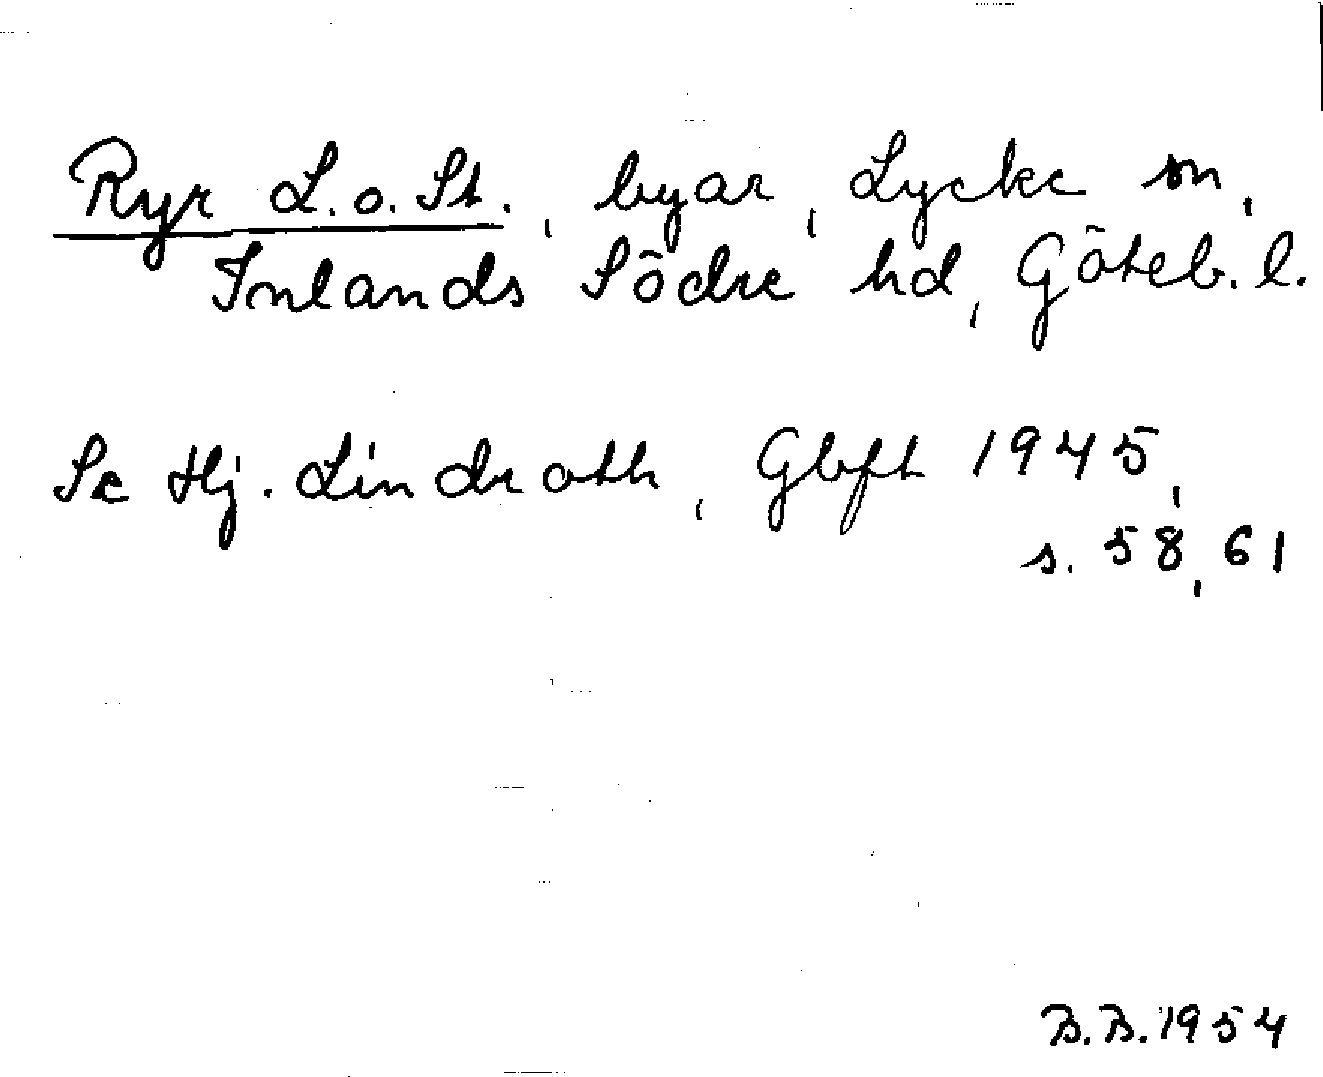 Ryr L. o. St., byar, Lycke sn,
Inlands Södre hd, Göteb. l.
Se Hj. Lindroth, Gbft 1945,
s. 58, 61
B.B. 1954